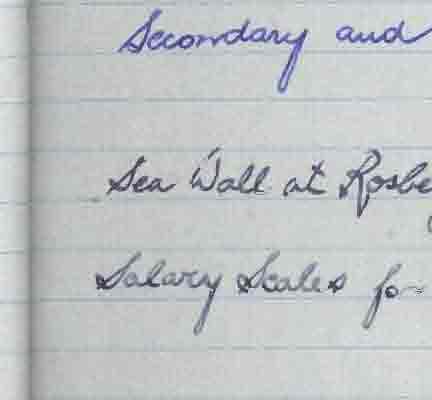 Secondary and
Sea Wall at Rosbe
Salary Scales for